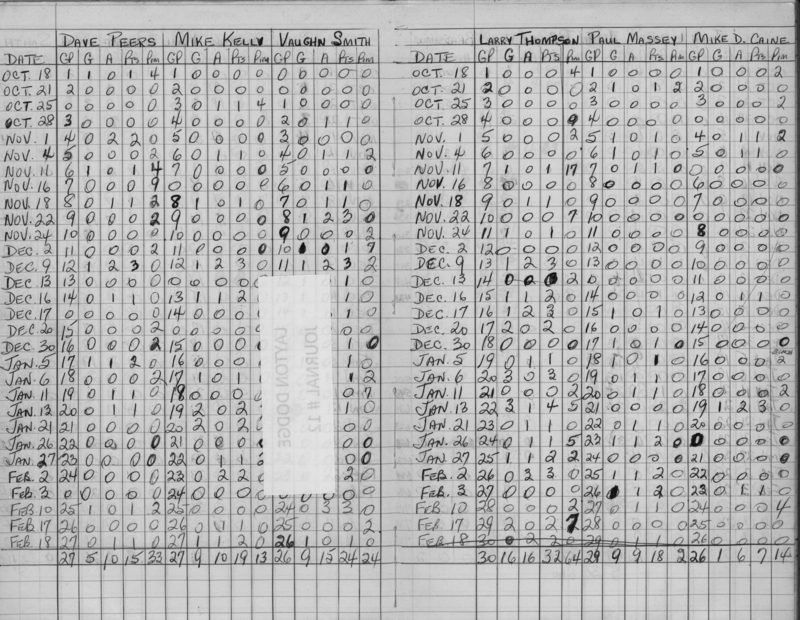 DAVE PEERS MIKE KELLY VAUGHN SMITH
DATE GP G A Pts Pim GP G A Pts Pim GP G A Pts Pim
OCT. 18 1 1 0 1 4 1 0 0 0 0 0 0 0 0 0
OCT. 21 2 0 0 0 0 2 0 0 0 0 0 0 0 0 0
OCT. 25 0 0 0 0 0 3 0 1 1 4 1 0 0 0 0
OCT. 28 3 0 0 0 0 4 0 0 0 0 2 0 1 1 0
NOV. 1 4 0 2 2 0 5 0 0 0 0 3 0 0 0 0
NOV. 4 5 0 0 0 2 6 0 1 1 0 4 0 1 1 2
NOV. 11 6 1 0 1 4 7 0 0 0 0 5 0 0 0 0
NOV. 16 7 0 0 0 0 0 0 0 0 6 0 1 1 0
NOV. 18 8 0 1 1 2 8 1 0 1 0 7 0 1 1 0
NOV. 22 9 0 0 0 2 9 0 0 0 0 8 1 2 3 0
NOV. 24 10 0 0 0 0 10 0 0 0 0 9 0 0 0 2
DEC. 2 11 0 0 0 2 11 0 0 0 0 10 0 1 7
DEC. 9 12 1 2 3 0 12 1 2 3 0 11 1 2 3 2
DEC. 13 13 0 0 0 0 0 0 0 0 1 0
DEC. 16 14 0 1 1 0 13 1 1 2 1 0
DEC. 17 0 0 0 0 0 14 0 0 0 1 0
DEC. 20 15 0 0 0 2 0 0 0 0 0 0
DEC. 30 16 0 0 0 2 15 0 0 0 1 0
JAN. 5 17 1 1 2 0 16 0 0 0 1 0
JAN. 6 18 0 0 0 2 17 1 0 1 1 2
JAN. 11 19 0 1 1 0 18 0 0 0 0 7
JAN. 13 20 0 1 1 0 19 2 0 2 1 0
JAN. 21 21 0 0 0 0 20 2 0 2
JAN. 26 22 0 0 0 0 21 0 0 0 0 0
JAN. 27 23 0 0 0 0 22 0 1 1 0 0
FEB. 2 24 0 0 0 0 23 0 2 2 2 0
FEB. 3 0 0 0 0 0 24 0 0 0 0 0
FEB 10 25 1 0 1 2 25 0 0 0 0 24 0 3 3 0
FEB 17 26 0 0 0 0 26 0 1 1 0 25 0 0 0 2
FEB 18 27 0 1 1 0 27 1 1 2 0 26 1 0 1 0
27 5 10 15 33 27 9 10 19 13 26 9 15 24 24
JOURNAL # 12
LAYTON DODGE
LARRY THOMPSON PAUL MASSEY MIKE D. CAINE
DATE GP G A Pts Pim GP G A Pts Pim GP G A Pts Pim
OCT. 18 1 0 0 0 4 1 0 0 0 0 1 0 0 0 2
OCT. 21 2 0 0 0 0 2 1 0 1 2 2 0 0 0 0
OCT 25 3 0 0 0 0 3 0 0 0 0 3 0 0 0 2
OCT. 28 4 0 0 0 9 4 0 0 0 0 0 0 0 0 0
NOV. 1 5 0 0 0 2 5 1 0 1 0 4 0 1 1 2
NOV. 4 6 0 0 0 0 6 1 0 1 0 5 0 1 1 0
NOV. 11 7 1 0 1 17 7 0 1 1 0 0 0 0 0 0
NOV. 16 8 0 0 0 0 8 0 0 0 0 6 0 0 0 0
NOV. 18 9 0 1 1 0 9 0 0 0 0 7 0 0 0 0
NOV. 22 10 0 0 0 7 10 0 0 0 0 0 0 0 0 0
NOV. 24 11 1 0 1 0 11 0 0 0 0 8 0 0 0 0
DEC. 2 12 0 0 0 0 12 0 0 0 0 9 0 0 0 0
DEC. 9 13 1 2 3 0 13 0 0 0 0 10 0 0 0 0
DEC. 13 14 0 0 0 2 0 0 0 0 0 11 0 0 0 0
DEC. 16 15 1 1 2 0 14 0 0 0 0 12 0 1 1 0
DEC. 17 16 1 2 3 0 15 1 0 1 0 13 0 0 0 0
DEC. 20 17 2 0 2 0 16 0 0 0 0 14 0 0 0 0
DEC. 30 18 0 0 0 0 17 1 0 1 0 15 0 0 0 0
JAN. 5 19 0 1 1 0 18 1 0 1 0 16 0 0 0 2
JAN. 6 20 3 0 3 0 19 0 1 1 0 17 0 0 0 0
JAN. 11 21 0 0 0 2 20 0 1 1 0 18 0 0 0 2
JAN. 13 22 3 1 4 5 21 0 0 0 0 19 1 2 3 0
JAN. 21 23 0 1 1 0 22 0 1 1 0 20 0 0 0 0
JAN. 26 24 0 1 1 5 23 1 1 2 0 0 0 0 0 0
JAN. 27 25 1 1 2 2 24 0 0 0 0 21 0 0 0 0
FEB. 2 26 0 3 3 0 25 1 1 2 0 22 0 0 0 0
FEB. 3 27 0 0 0 0 26 1 2 0 23 0 1 1 0
FEB. 10 28 0 0 0 2 27 0 1 1 0 24 0 0 0 4
FEB. 17 29 2 0 2 7 28 0 0 0 0 25 0 0 0 0
FEB. 18 30 0 2 2 0 29 0 1 1 0 26 0 0 0 0
30 16 16 32 64 29 9 9 18 2 26 1 6 7 14